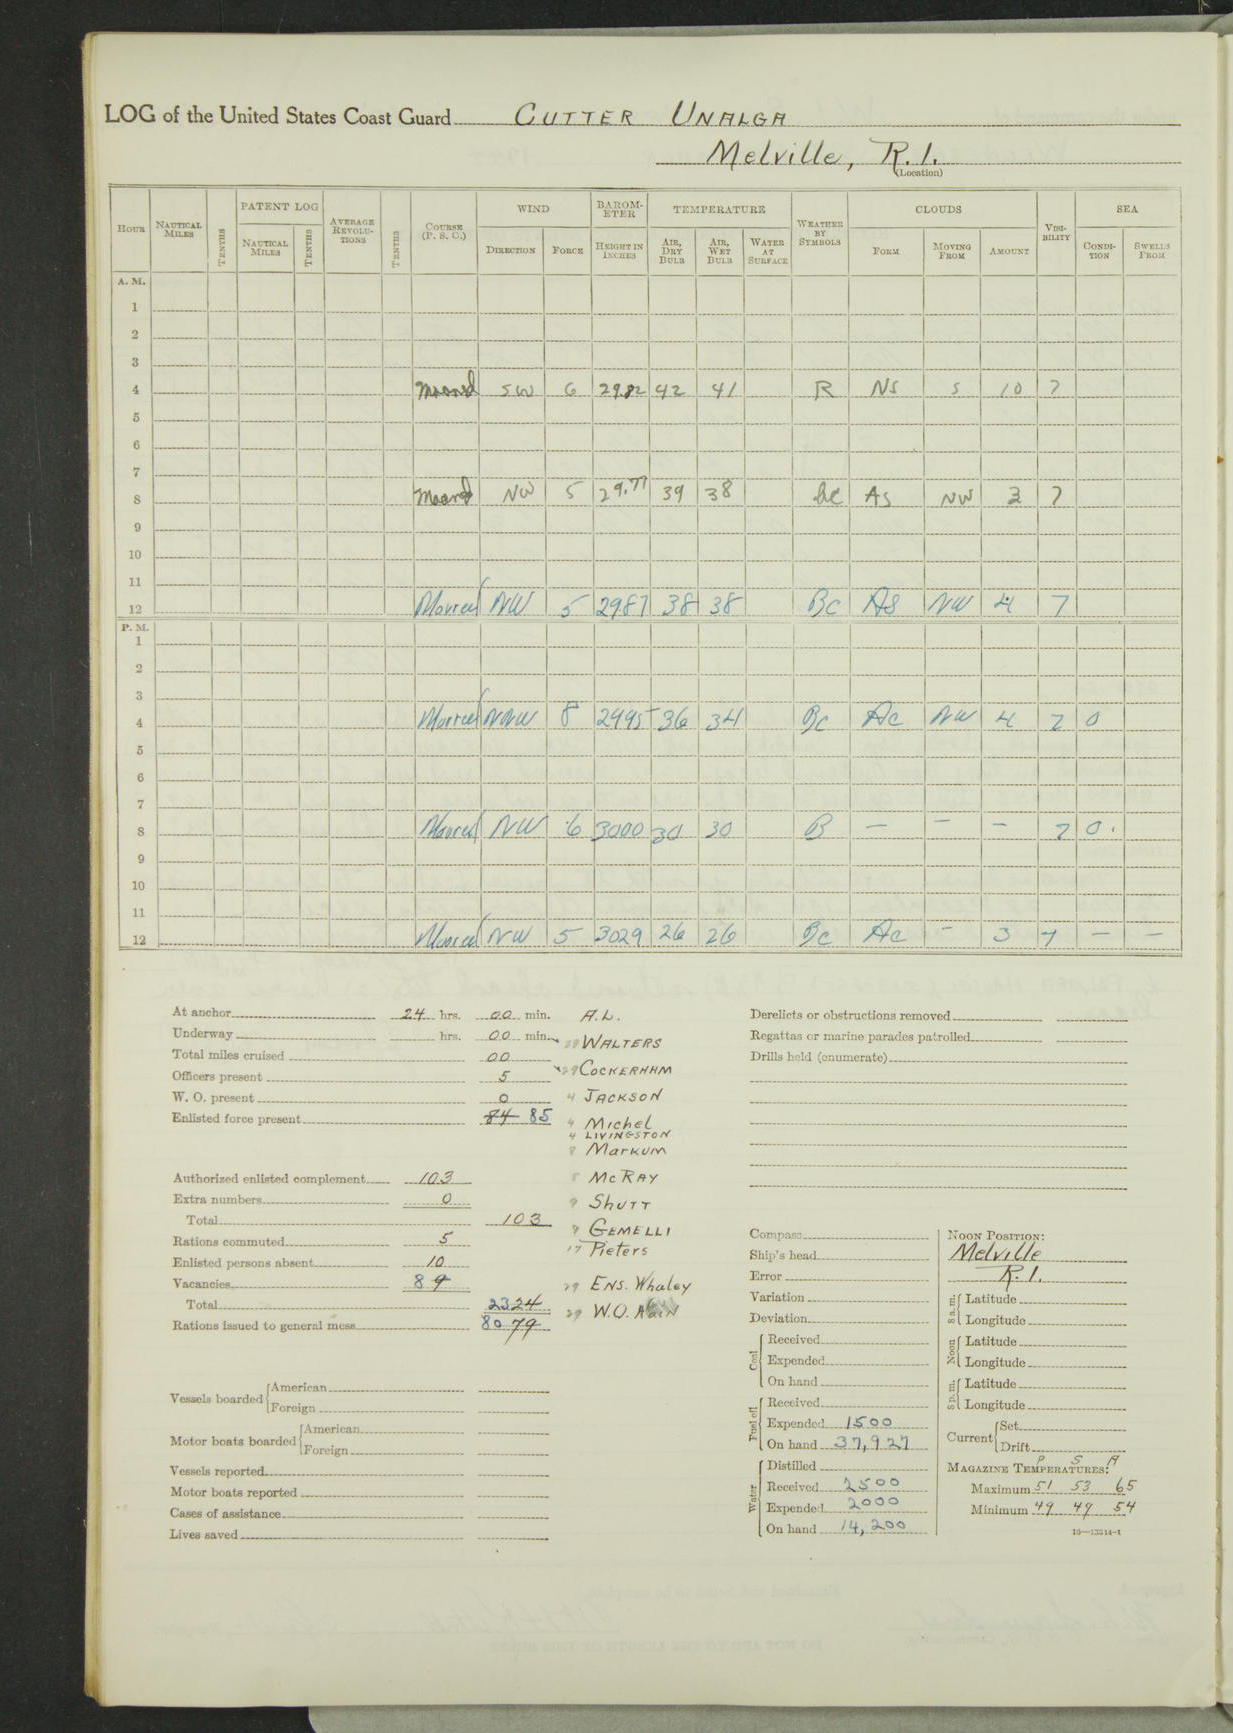 LOG of the United States Coast Guard CUTTER UNALGA
Melville, R.I.
(Location)
HOUR NAUTICAL MILES TENTHS PATENT LOG NAUTICAL MILES TENTHS AVERAGE REVOLUTIONS TENTHS COURSE (P. S. C.) WIND DIRECTION FORCE BAROMETER HEIGHT IN INCHES TEMPERATURE AIR, DRY BULB AIR, WET BULB WATER AT SURFACE WEATHER BY SYMBOLS CLOUDS FORM MOVING FROM AMOUNT VISIBILITY SEA CONDITION SWELLS FROM
A. M.
1
2
3
4 Moored SW 6 29.82 42 41 R NS S 10 7
5
6
7
8 Moored NW 5 29.77 39 38 bc AS NW 3 7
9
10
11
12 Moored NW 5 2987 38 38 Bc AS NW 4 7
P. M.
1
2
3
4 Moored NNW 8 2995 36 34 Bc Ac NW 4 7 0
5
6
7
8 Moored NW 6 3000 30 30 B — — — 7 0.
9
10
11
12 Moored NW 5 3029 26 26 Bc Ac - 3 7 — —
At anchor 24 hrs. 00 min.
Underway hrs. 00 min.
Total miles cruised 00
Officers present 5
W. O. present 0
Enlisted force present 84 85
Authorized enlisted complement 103
Extra numbers 0
Total 103
Rations commuted 5
Enlisted persons absent 10
Vacancies 8 9
Total 23 24
Rations issued to general mess 80 79
Vessels boarded American
Foreign
Motor boats boarded American
Foreign
Vessels reported
Motor boats reported
Cases of assistance
Lives saved
A.L.
29 WALTERS
29 COCKERHAM
4 JACKSON
4 Michel
4 LIVINGSTON
8 MARKUM
8 McRAY
9 SHUTT
9 GEMELLI
17 Pieters
29 ENS. Whaley
29 W.O.
Derelicts or obstructions removed
Regattas or marine parades patrolled
Drills held (enumerate)
Compass
Ship's head
Error
Variation
Deviation
Coal Received
Expended
On hand
Fuel oil Received
Expended 1500
On hand 37,927
Water Distilled
Received 2500
Expended 2000
On hand 14,200
NOON POSITION:
Melville
R.I.
8 a. m. Latitude
Longitude
Noon Latitude
Longitude
8 p. m. Latitude
Longitude
Current Set
Drift
P S A
MAGAZINE TEMPERATURES:
Maximum 51 53 65
Minimum 49 49 54
16—13314-1